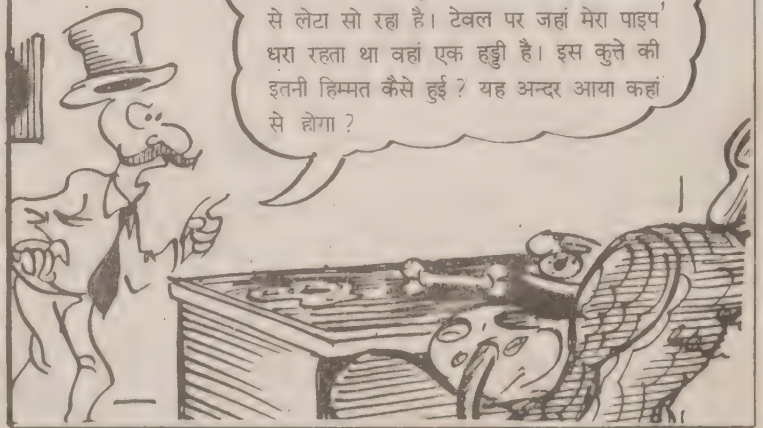 से लेटा सो रहा है। टेवल पर जहां मेरा पाइप
धरा रहता था वहां एक हड्डी है। इस कुत्ते की
इतनी हिम्मत कैसे हुई ? यह अन्दर आया कहां
से होगा ?